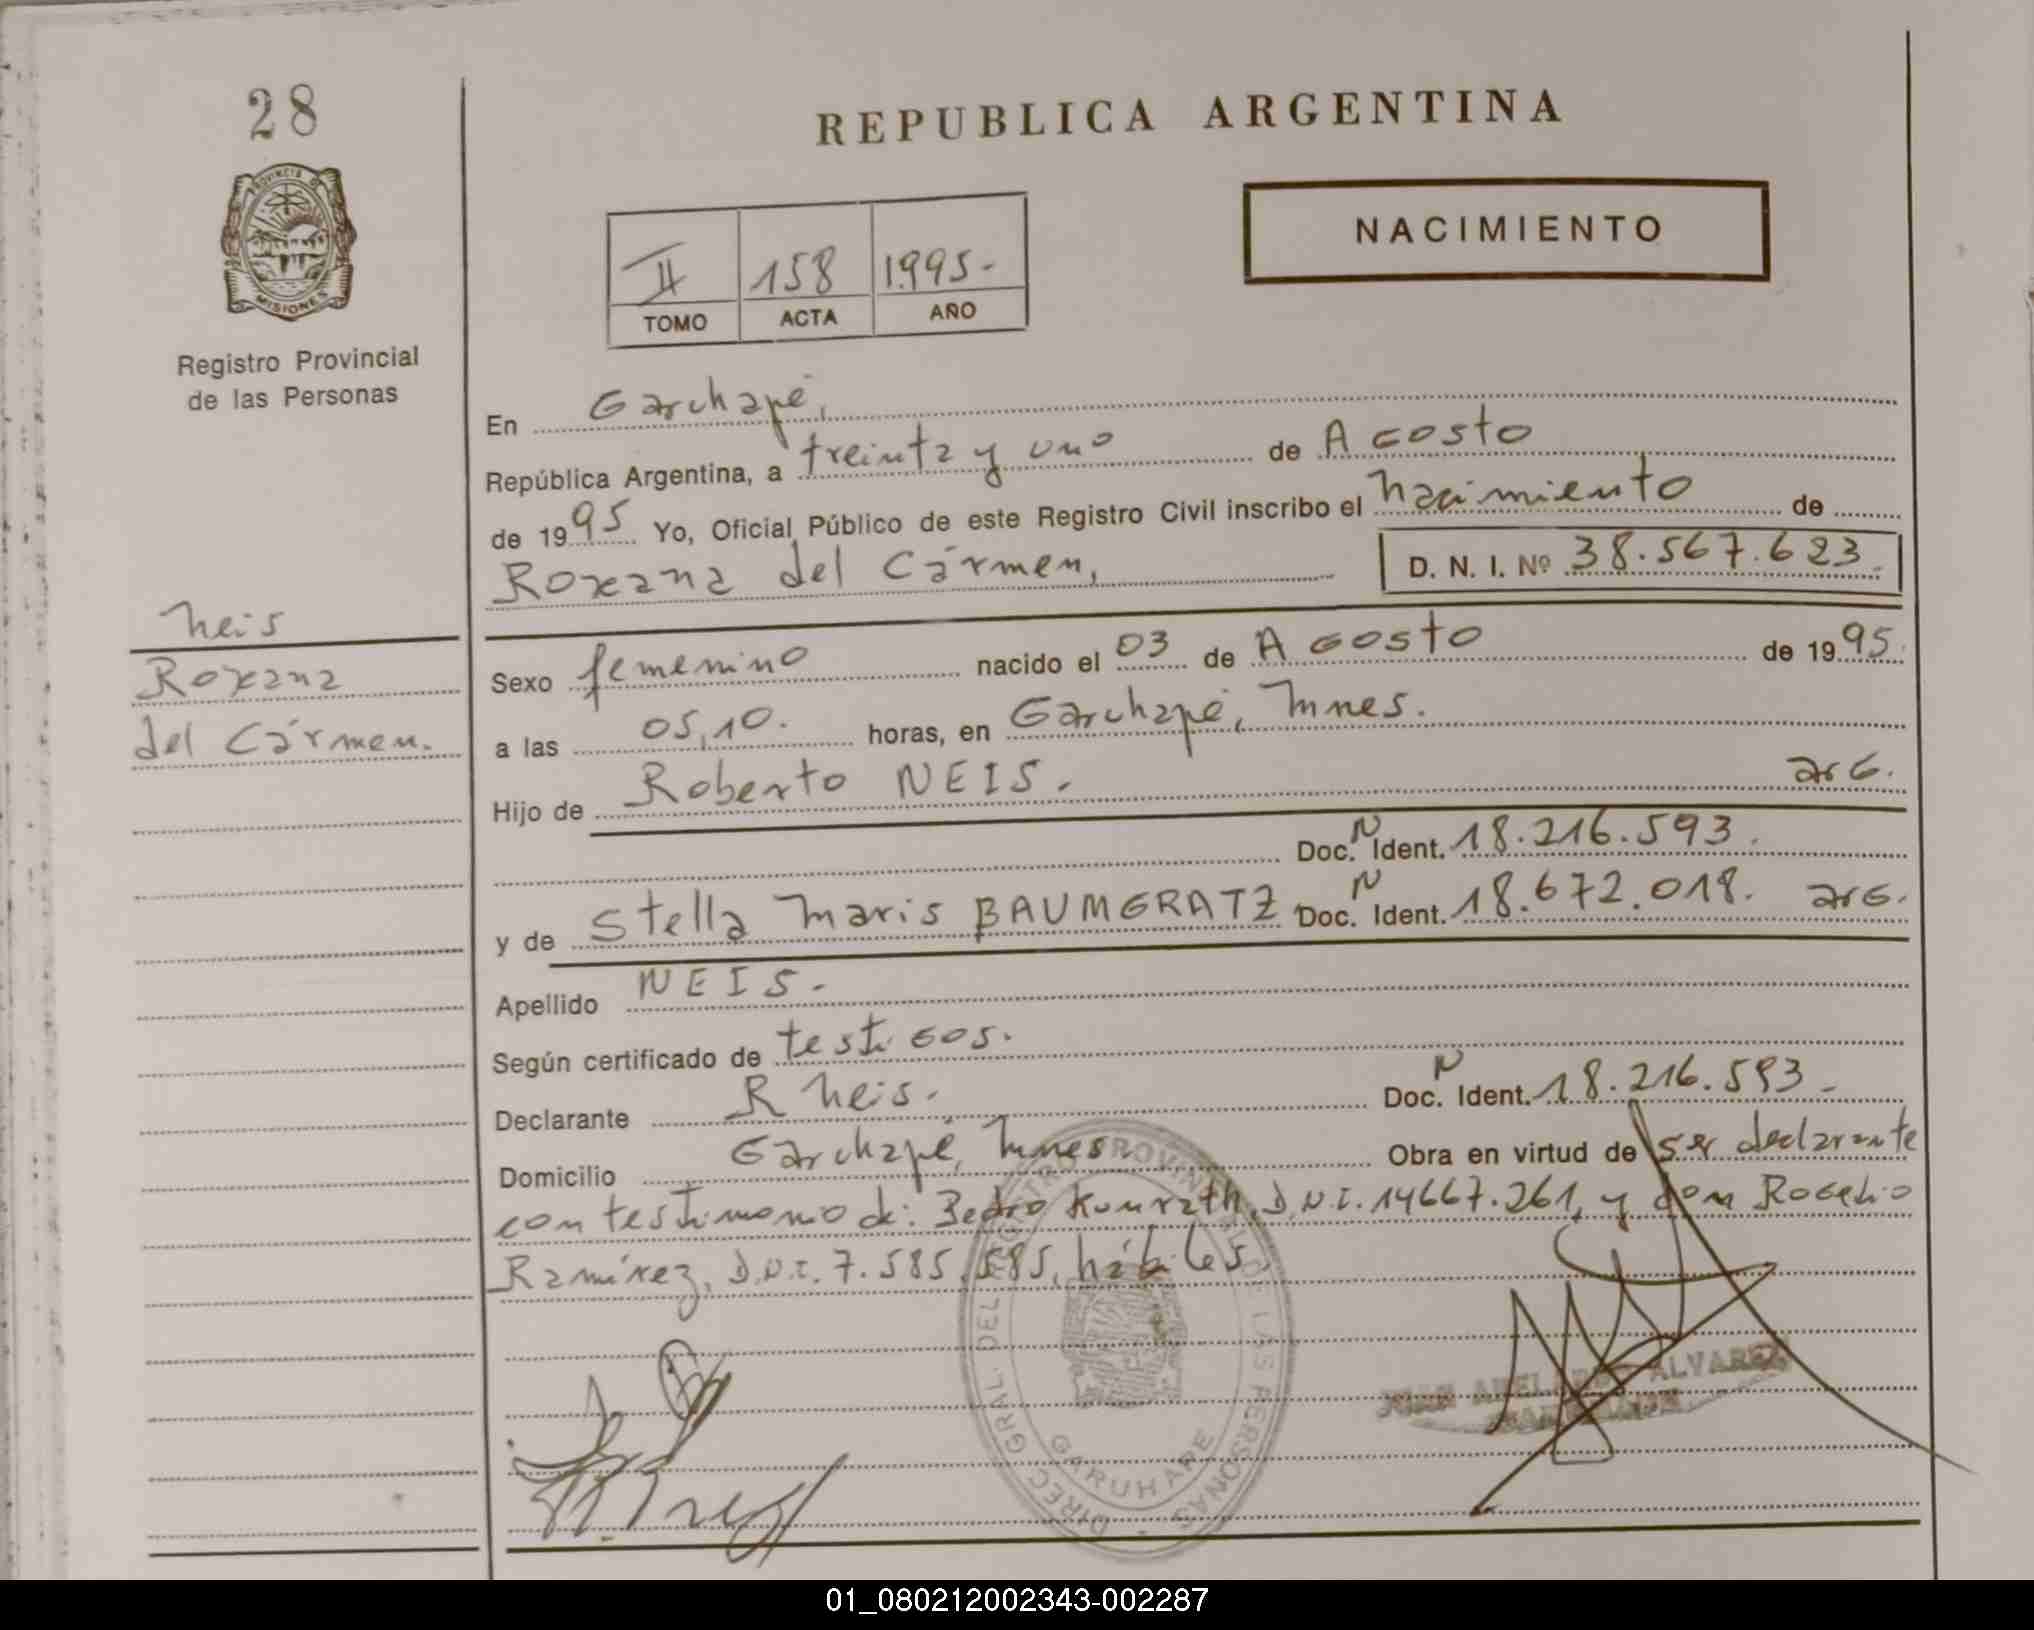 28
REPUBLICA ARGENTINA
PROVINCIA DE
MISIONES
Registro Provincial
de las Personas
NACIMIENTO
II 158 1.995.-
TOMO ACTA AÑO
En Garuhapé,
República Argentina, a treinta y uno de AGOSTO
de 1995 Yo, Oficial Público de este Registro Civil inscribo el nacimiento de
Roxana del Cármen, D. N. I. Nº 38.567.623.
Neis
Roxana
del Cármen.
Sexo femenino nacido el 03 de AGOSTO de 1995.
a las 05,10. horas, en Garuhapé, Mnes.
Hijo de Roberto NEIS. arG.
Doc. N Ident. 18.216.593.
y de Stella Maris BAUMGRATZ Doc. N Ident. 18.672.018. arG.
Apellido NEIS.-
Según certificado de testigos.
Declarante R Neis. Doc. N Ident. 18.216.593.-
Domicilio Garuhapé, Mnes. Obra en virtud de ser declarante
con testimonio de: Pedro Kunrath, D.N.I. 14667.261, y don Rogelio
Ramírez, D.N.I. 7.585.585, hábiles.
DIREC. GRAL. DEL REGISTRO PROVINCIAL DE LAS PERSONAS
GARUHAPE
JUAN ALVAREZ
01_080212002343-002287